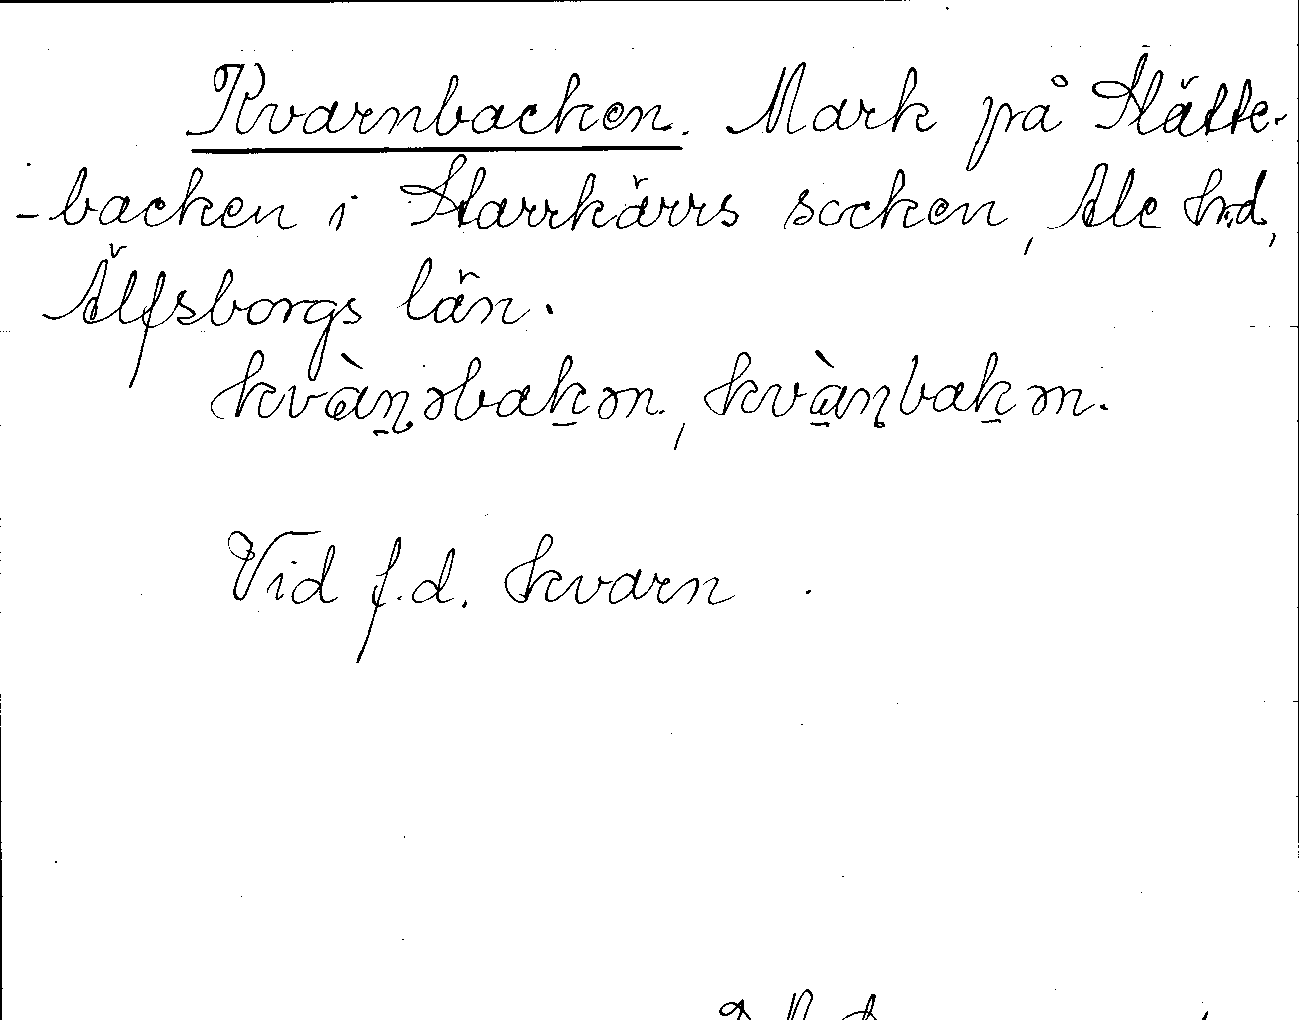 Kvarnbacken. Mark på Stätte-
-backen i Starrkärrs socken, Ale hd,
Älfsborgs län.
kvàɳəbakən, kvàɳbakən.
Vid f.d. kvarn